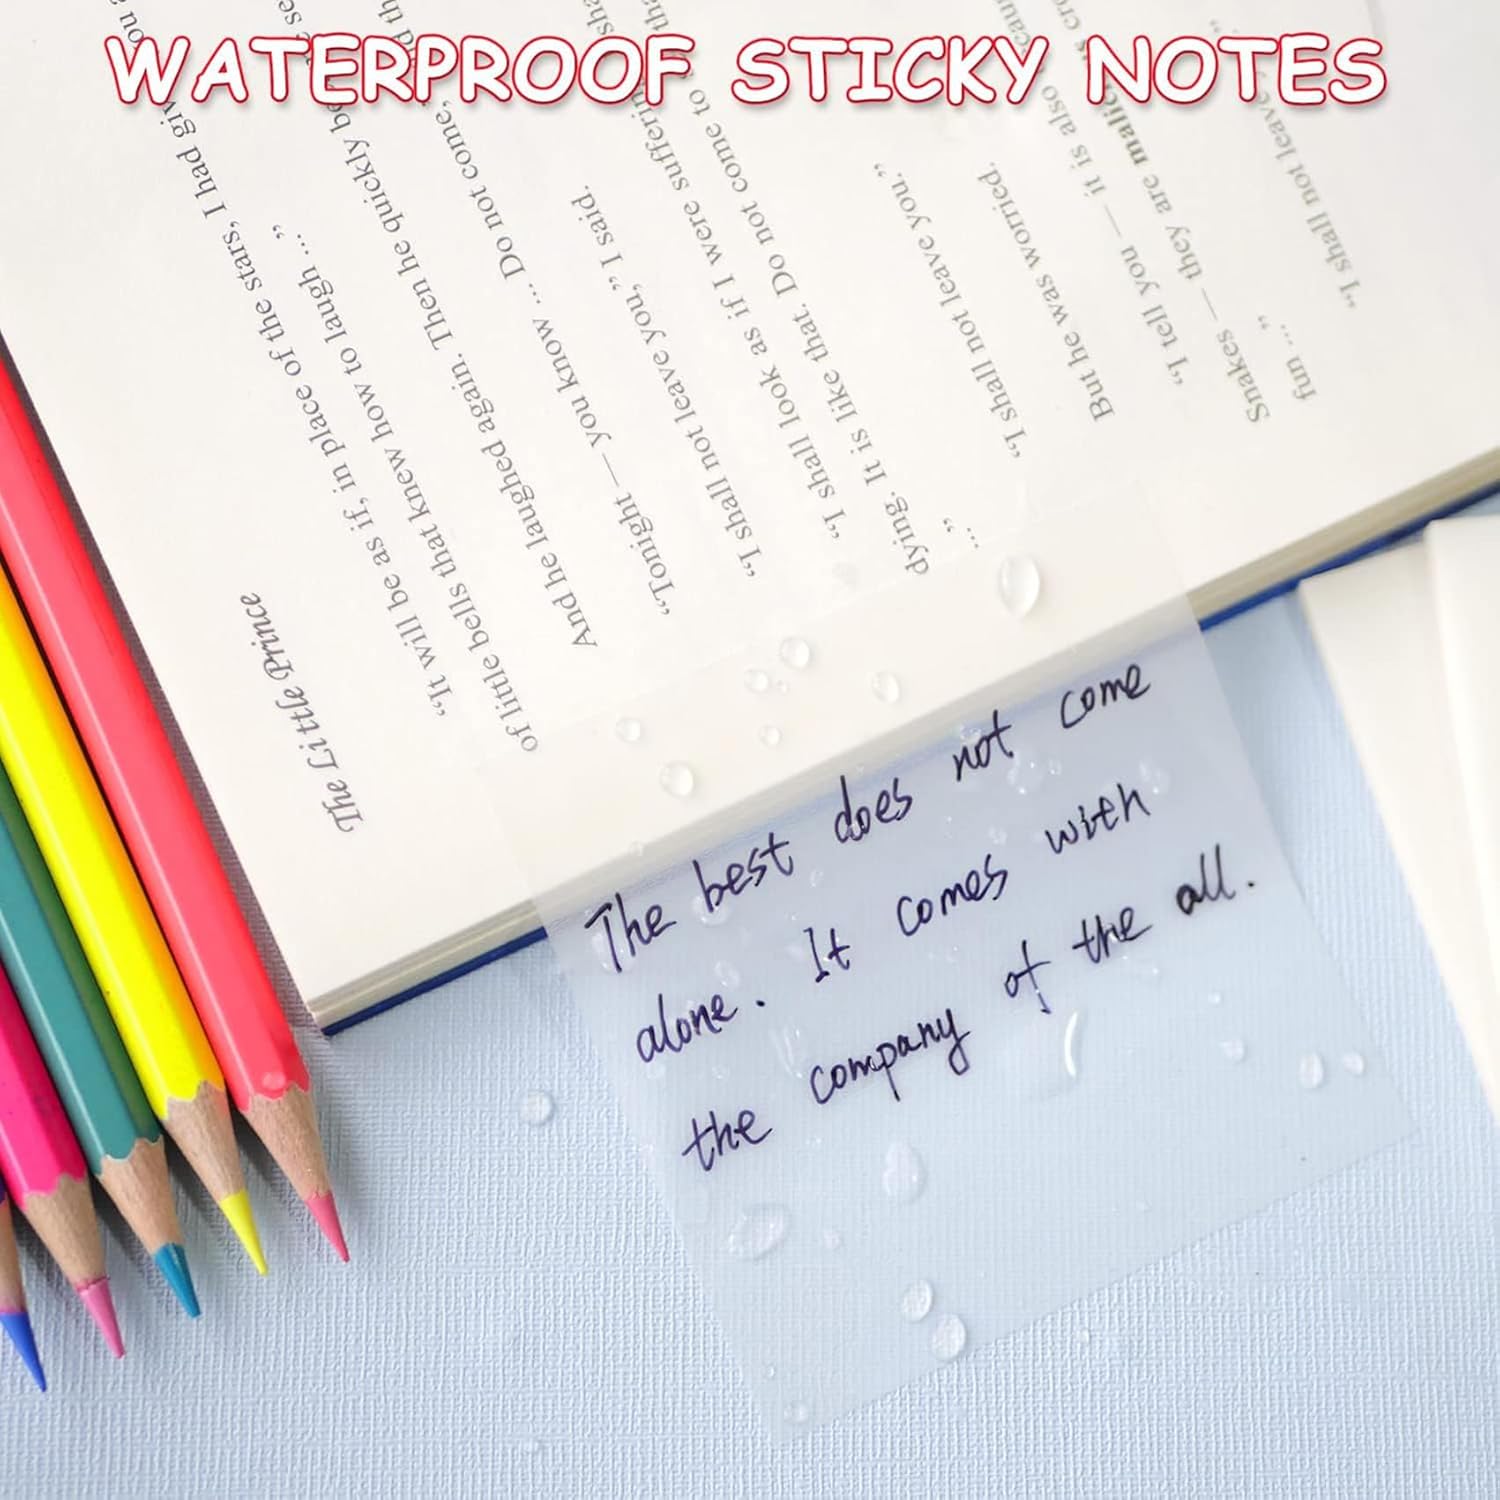 WATERPROOF STICKY NOTES
The Little Prince
"It will be as if, in place of the stars, I had giv
of little bells that knew how to laugh ..."
And he laughed again. Then he quickly be
"Tonight — you know ... Do not come,
"I shall not leave you," I said.
"I shall look as if I were suffering
dying. It is like that. Do not come to
..."
"I shall not leave you."
But he was worried.
"I tell you — it is also
Snakes — they are malic
fun ..."
"I shall not leave
The best does not come
alone. It comes with
the company of the all.